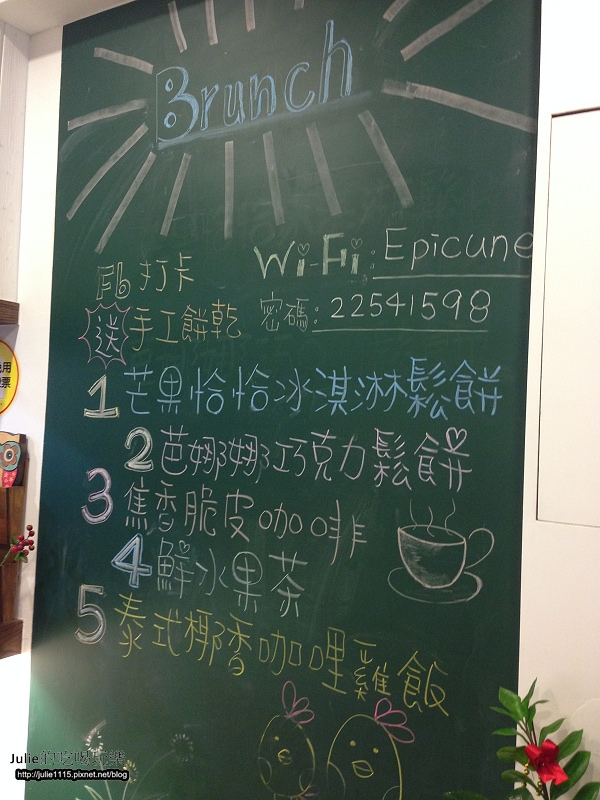 Brunch
Wi-Fi: Epicune
Fb 打卡
密碼: 22541598
送 手工餅乾
1 芒果恰恰冰淇淋鬆餅
2 芭娜娜巧克力鬆餅
3 焦香脆皮咖啡
4 鮮水果茶
5 泰式椰香咖哩雞飯
Julie的吃喝玩樂
http://julie1115.pixnet.net/blog